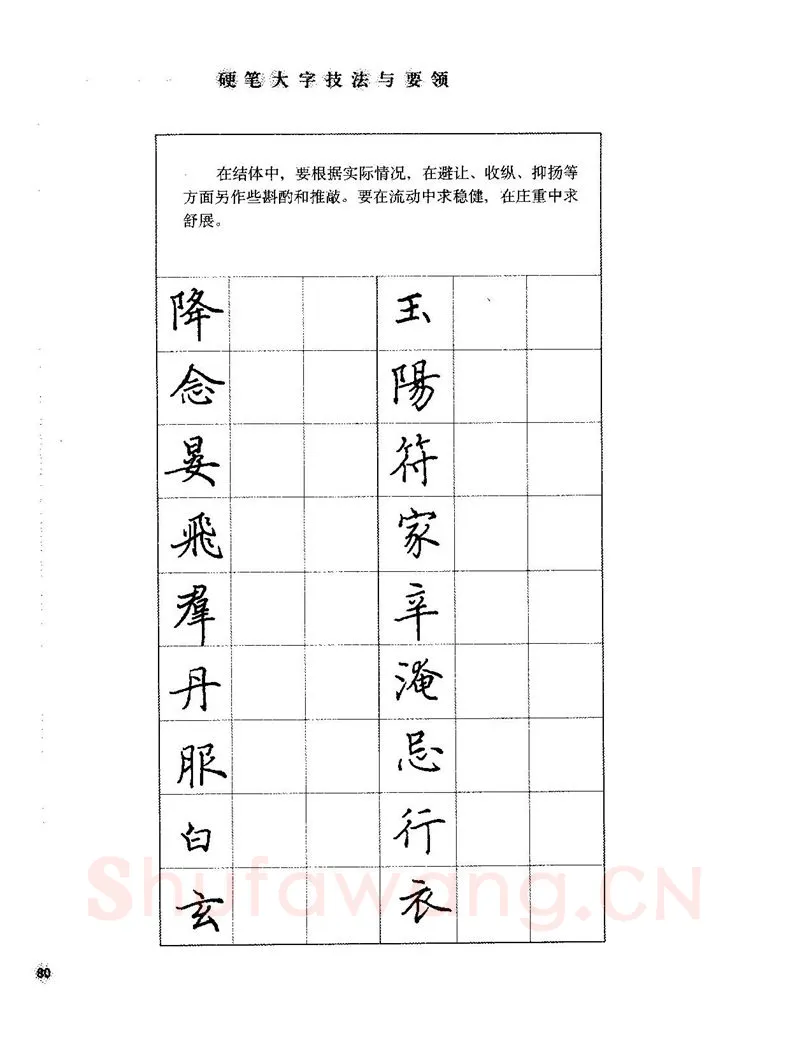 硬笔大字技法与要领
在结体中，要根据实际情况，在避让、收纵、抑扬等
方面另作些斟酌和推敲。要在流动中求稳健，在庄重中求
舒展。
降 玉
念 陽
晏 符
飛 家
羣 辛
丹 淹
服 忌
白 行
玄 衣
Shufawang.CN
80